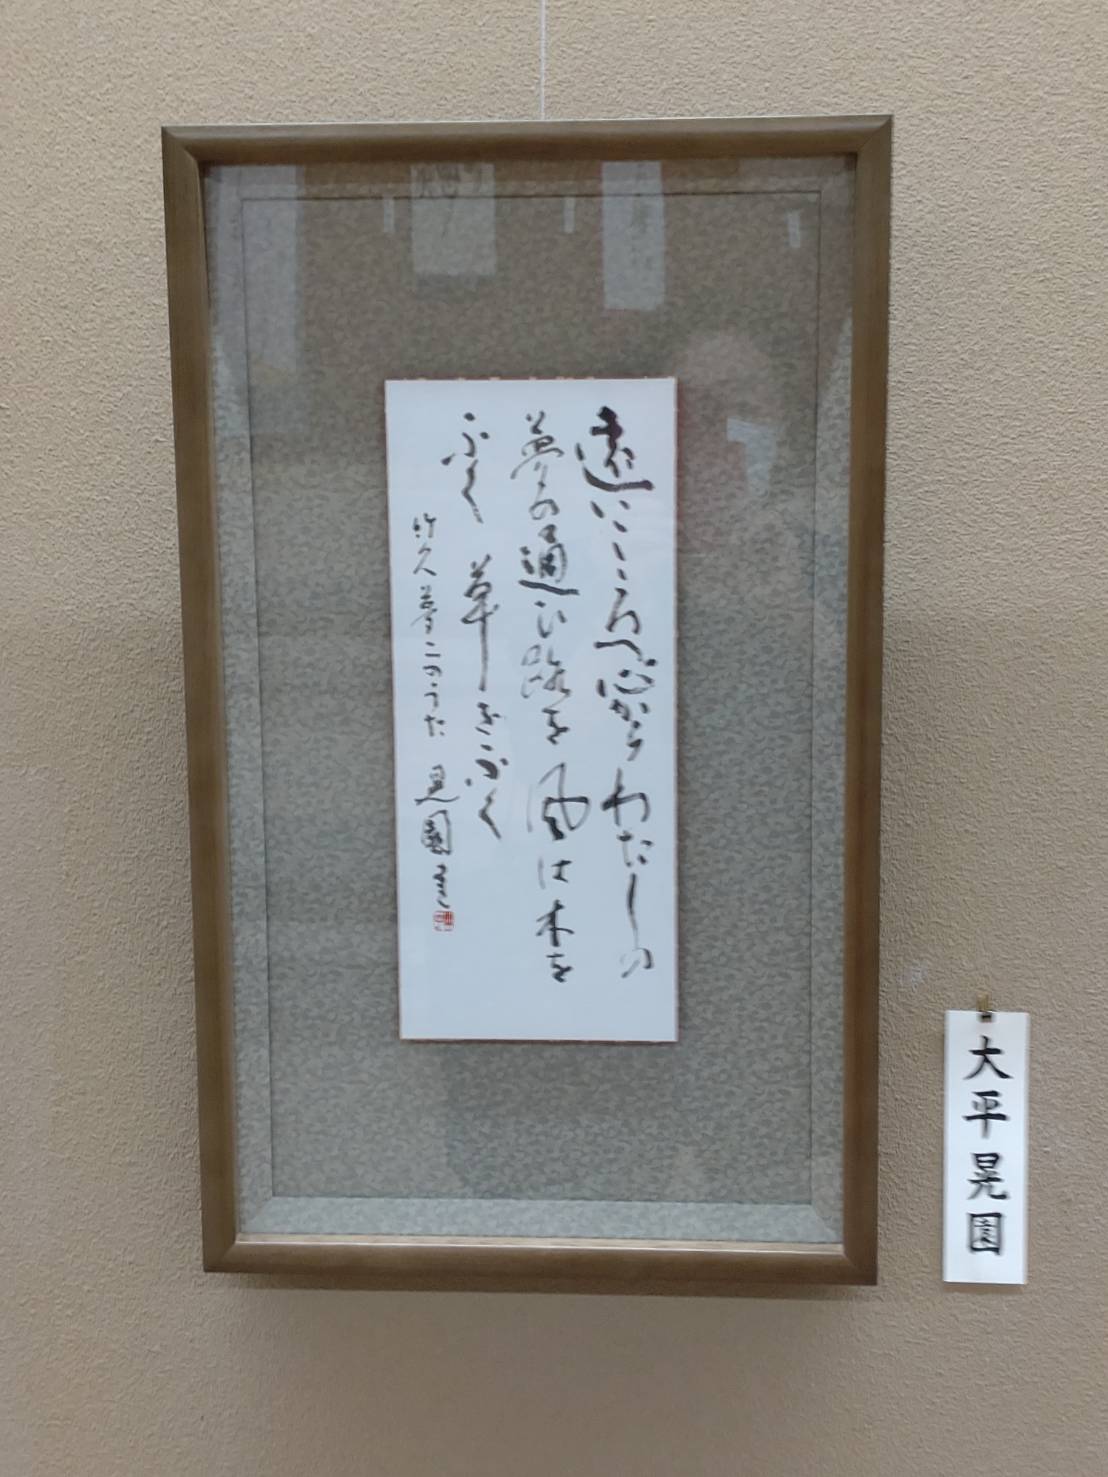 遠いこころへ心からわたしの
夢の通ひ路を風は木を
ふく 草をふく
竹久夢二のうた 晃園書
大平晃園